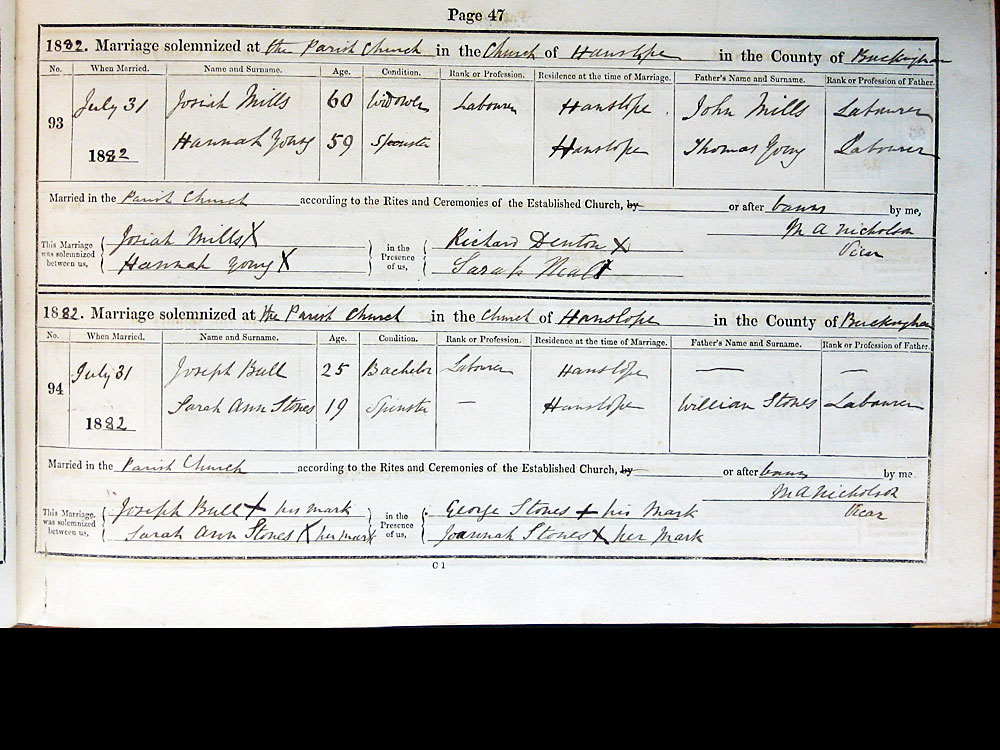 Page 47
1882. Marriage solemnized at the Parish Church in the Church of Hanslope in the County of Buckingham
No. When Married. Name and Surname. Age. Condition. Rank or Profession. Residence at the time of Marriage. Father's Name and Surname. Rank or Profession of Father.
July 31 Josiah Mills 60 Widower Labourer Hanslope. John Mills Labourer
93
1882 Hannah Young 59 Spinster Hanslope Thomas Young Labourer
Married in the Parish Church according to the Rites and Ceremonies of the Established Church, by or after banns by me,
M A Nicholson
Vicar
This Marriage was solemnized between us, Josiah Mills X in the Presence of us, Richard Denton X
Hannah Young X Sarah
1882. Marriage solemnized at the Parish Church in the Church of Hanslope in the County of Buckingham
No. When Married. Name and Surname. Age. Condition. Rank or Profession. Residence at the time of Marriage. Father's Name and Surname. Rank or Profession of Father.
July 31 Joseph Bull 25 Bachelor Labourer Hanslope — —
94
1882 Sarah Ann Stones 19 Spinster — Hanslope William Stones Labourer
Married in the Parish Church according to the Rites and Ceremonies of the Established Church, by or after banns by me
M A Nicholson
Vicar
This Marriage was solemnized between us, Joseph Bull X his mark in the Presence of us, George Stones X his Mark
Sarah Ann Stones X her mark Joannah Stones X her Mark
C 1